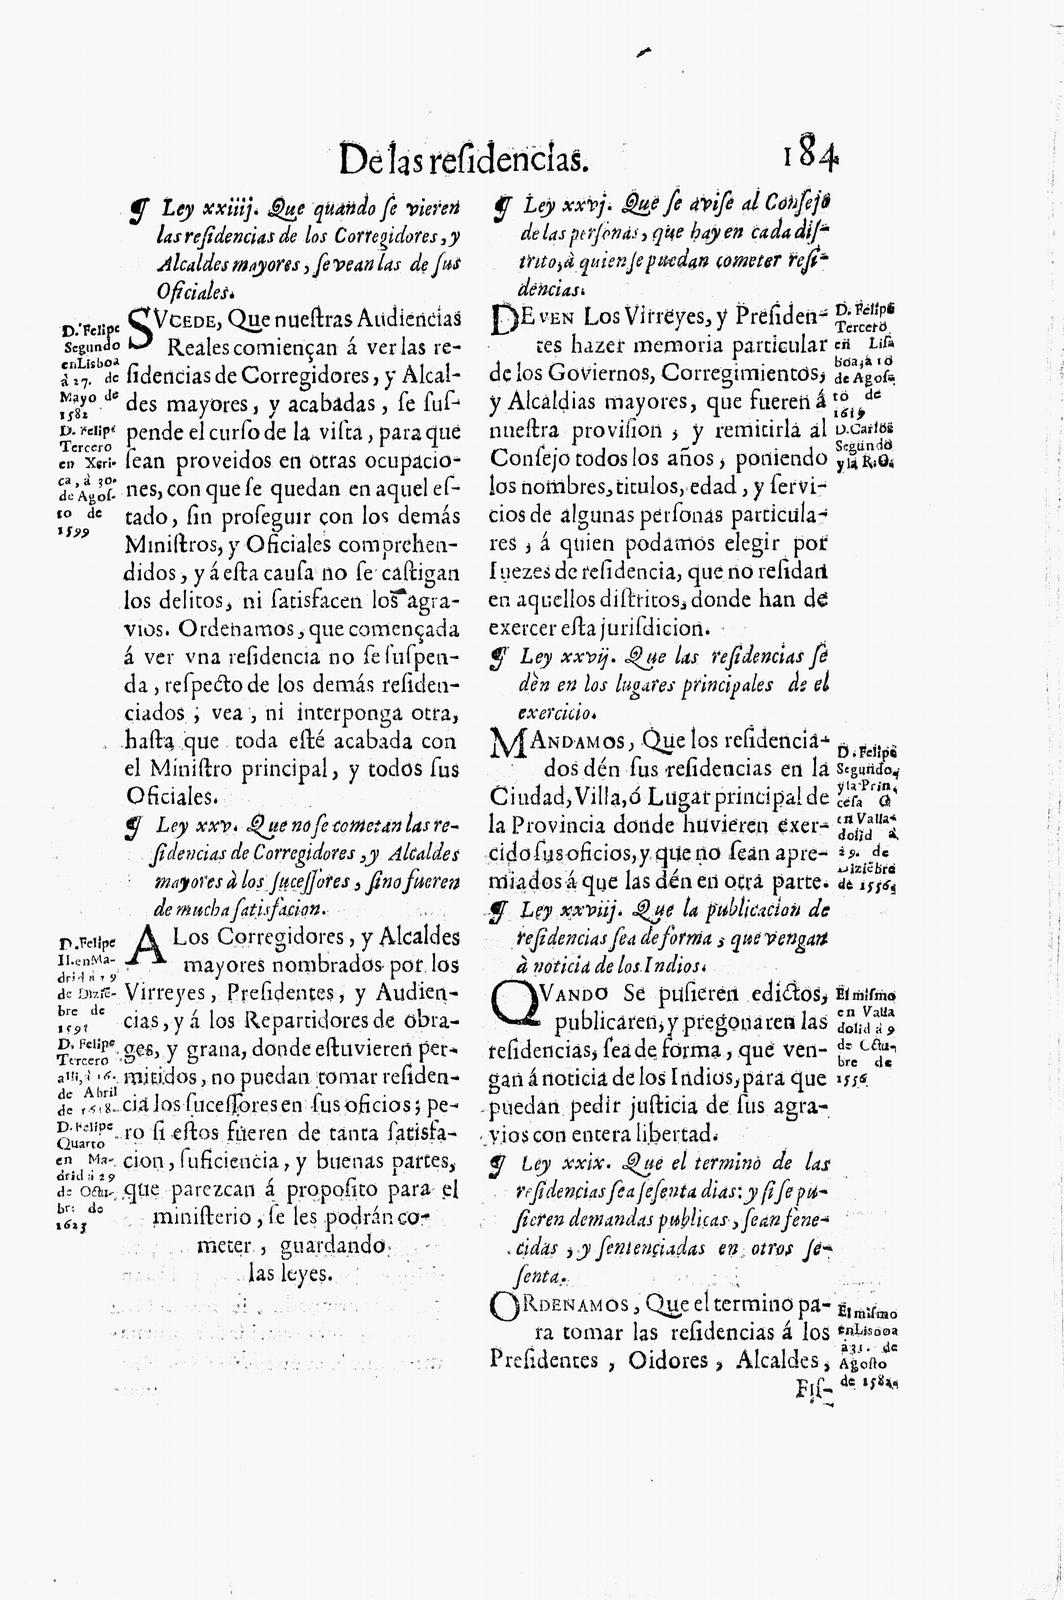 De las residencias.
184
¶ Ley xxiiij. Que quando se vieren
las residencias de los Corregidores, y
Alcaldes mayores, se vean las de sus
Oficiales.
D. Felipe
Segundo
en Lisboa
à 27. de
Mayo de
1582
D. Felipe
Tercero
en Xeri-
ca, à 30.
de Agos-
to de
1599
SVCEDE, Que nuestras Audiencias
Reales comiençan á ver las re-
sidencias de Corregidores, y Alcal-
des mayores, y acabadas, se sus-
pende el curso de la vista, para que
sean proveidos en otras ocupacio-
nes, con que se quedan en aquel es-
tado, sin proseguir con los demás
Ministros, y Oficiales comprehen-
didos, y á esta causa no se castigan
los delitos, ni satisfacen los agra-
vios. Ordenamos, que començada
á ver vna residencia no se suspen-
da, respecto de los demás residen-
ciados; vea, ni interponga otra,
hasta que toda esté acabada con
el Ministro principal, y todos sus
Oficiales.
¶ Ley xxv. Que no se cometan las re-
sidencias de Corregidores, y Alcaldes
mayores à los sucessores, sino fueren
de mucha satisfacion.
D. Felipe
II. en Ma-
drid à 19
de Dizie-
bre de
1591
D. Felipe
Tercero
alli, à 16.
de Abril
de 1618.
D. Felipe
Quarto
en Ma-
drid à 29
de Octu-
bre de
1623
A Los Corregidores, y Alcaldes
mayores nombrados por los
Virreyes, Presidentes, y Audien-
cias, y á los Repartidores de obra-
ges, y grana, donde estuvieren per-
mitidos, no puedan tomar residen-
cia los sucessores en sus oficios; pe-
ro si estos fueren de tanta satisfa-
cion, suficiencia, y buenas partes,
que parezcan á proposito para el
ministerio, se les podrán co-
meter, guardando
las leyes.
¶ Ley xxvj. Que se avise al Consejo
de las personas, que hay en cada dis-
trito, à quien se puedan cometer resi-
dencias.
DEVEN Los Virreyes, y Presiden-
tes hazer memoria particular
de los Goviernos, Corregimientos,
y Alcaldias mayores, que fueren á
nuestra provision, y remitirla al
Consejo todos los años, poniendo
los nombres, titulos, edad, y servi-
cios de algunas personas particula-
res, á quien podamos elegir por
Iuezes de residencia, que no residan
en aquellos distritos, donde han de
exercer esta jurisdicion.
D. Felipe
Tercero
en Lis
boa, à 10
de Agos-
to de
1619
D. Carlos
Segundo
y la R. G.
¶ Ley xxvij. Que las residencias se
dèn en los lugares principales de el
exercicio.
MANDAMOS, Que los residencia-
dos dén sus residencias en la
Ciudad, Villa, ó Lugar principal de
la Provincia donde huvieren exer-
cido sus oficios, y que no sean apre-
miados á que las dén en otra parte.
D. Felipe
Segundo,
y la Prin,
cesa G
en Valla-
dolid à
29. de
Diziebre
de 1556.
¶ Ley xxviij. Que la publicacion de
residencias sea de forma, que vengan
à noticia de los Indios.
QVANDO Se pusieren edictos,
publicaren, y pregonaren las
residencias, sea de forma, que ven-
gan á noticia de los Indios, para que
puedan pedir justicia de sus agra-
vios con entera libertad.
El mismo
en Valla
dolid à 9
de Octu-
bre de
1556
¶ Ley xxix. Que el termino de las
residencias sea sesenta dias: y si se pu-
sieren demandas publicas, sean fene-
cidas, y sentenciadas en otros se-
senta.
ORDENAMOS, Que el termino pa-
ra tomar las residencias á los
Presidentes, Oidores, Alcaldes,
Fis-
El mismo
en Lisboa
à 31. de
Agosto
de 1582.